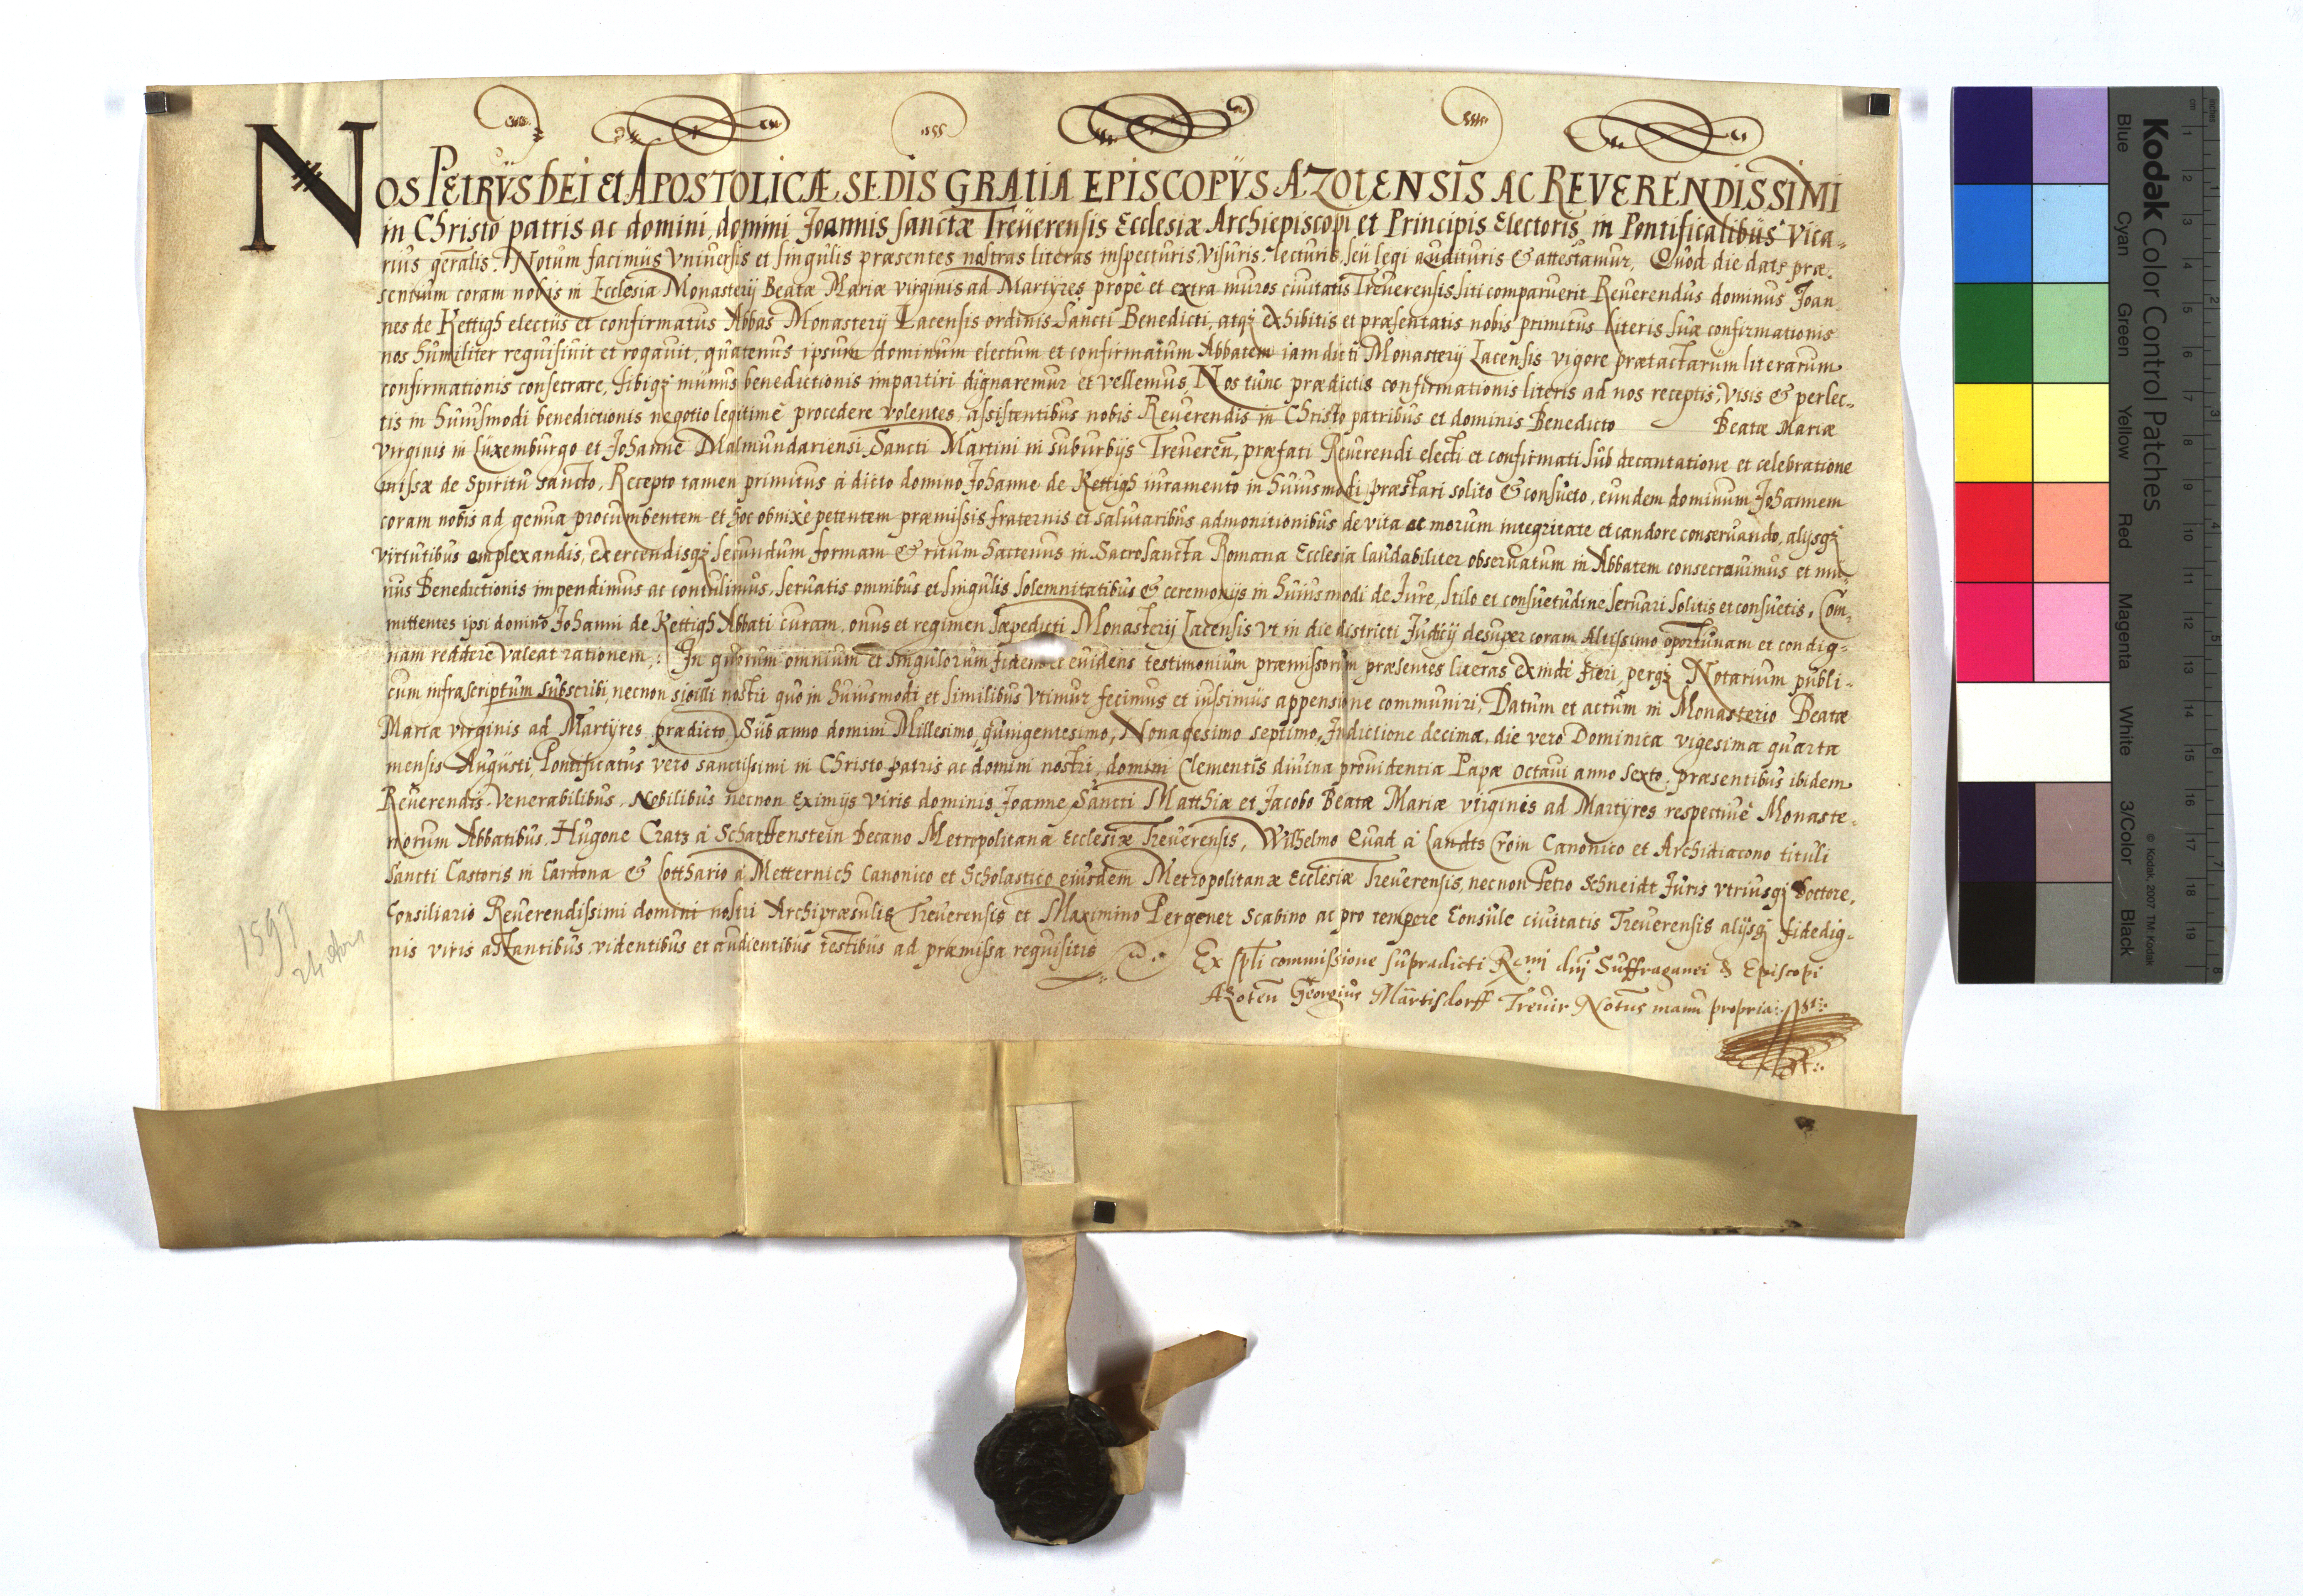 NOS PETRVS DEI Et APOSTOLICÆ SEDIS GRAtIA EPISCOPVS AZOtENSIS AC REVERENDISSIMI
in Christo patris ac domini, domini Joannis sanctæ Treüerensis Ecclesiæ Archiepiscopi et Principis Electoris in Pontificalibüs vica-
rius gералis. Notum facimüs vniuersis et singulis præsentes nostras literas inspecturis, visuris, lecturis, seü legi audituris & attestamur, Quod die datæ præ-
sentium coram nobis in Ecclesia Monasterij Beatæ Mariæ virginis ad Martÿres, propè et extra muros ciuitatis Treuerensis siti comparuerit Reuerendus dominus Joan
nes de Kettigh electüs et confirmatus Abbas Monasterij Lacensis ordinis Sancti Benedicti, atqz exhibitis et præsentatis nobis primitus literis suæ confirmationis
nos humiliter requisiuit et rogauit, quatenus ipsum dominum electum et confirmatum Abbatem iam dicti Monasterij Lacensis vigore prætactarum literarum
confirmationis consecrare, sibiqz münus benedictionis impartiri dignaremur et vellemus, Nos tunc prædictis confirmationis literis ad nos receptis, visis & perlec-
tis in huiusmodi benedictionis negotio legitimè procedere volentes, assistentibus nobis Reuerendis in Christo patribus et dominis Benedicto Beatæ Mariæ
virginis in Luxemburgo et Johanne Malmundariensi, Sancti Martini in suburbijs Treueren, præfati Reuerendi electi et confirmati sub decantatione et celebratione
missæ de Spiritu sancto, Recepto tamen primitus à dicto domino Johanne de Kettigh iuramento in huiusmodi præstari solito & consueto, eundem dominum Johannem
coram nobis ad genua procumbentem et hoc obnixè petentem præmissis fraternis et salutaribus admonitionibus de vita ac morum integritate et candore conseruando, alijsqz
virtutibus amplexandis, exercendisqz secundum formam & ritum hactenus in Sacrosancta Romana Ecclesia laudabiliter obseruatum in Abbatem consecrauimus et mu-
nus Benedictionis impendimus ac contulimus, seruatis omnibus et singulis solemnitatibus & ceremonijs in huiusmodi de Jure, stilo et consuetudine seruari solitis et consuetis, Com-
mittentes ipsi domino Johanni de Kettigh Abbati curam, onus et regimen sæpedicti Monasterij Lacensis vt in die districti Judicij desuper coram Altissimo oportunam et condig-
nam reddere valeat rationem. In quorum omnium et singulorum fidem et euidens testimonium præmissorum præsentes literas exinde fieri, perqz Notarium publi-
cum infrascriptum subscribi, necnon sigilli nostri quo in huiusmodi et similibus vtimur fecimus et iussimüs appensione communiri, Datum et actum in Monasterio Beatæ
Mariæ virginis ad Martÿres prædicto, Sub anno domini Millesimo, quingentesimo, Nonagesimo septimo, Indictione decima, die vero Dominica vigesima quarta
mensis Augüsti, Pontificatus vero sanctissimi in Christo patris ac domini nostri, domini Clementis diuina prouidentia Papæ octaui anno sexto, præsentibus ibidem
Reuerendis Venerabilibus, Nobilibus necnon Eximijs viris dominis Joanne Sancti Matthiæ et Jacobo Beatæ Mariæ virginis ad Martÿres respectiuè Monaste-
riorum Abbatibus, Hugone Cratz à Scharffenstein Decano Metropolitanæ Ecclesiæ Treuerensis, Wilhelmo Quad à Landts Croin Canonico et Archidiacono tituli
Sancti Castoris in Cardona & Lotthario à Metternich Canonico et Scholastico eiusdem Metropolitanæ Ecclesiæ Treuerensis, necnon Petro Schneidt Juris vtriusqz Doctore,
Consiliario Reuerendissimi domini nostri Archipræsulis Treuerensis et Maximino Pergener Scabino ac pro tempore Consule ciuitatis Treuerensis alijsqz fidedig-
nis viris astantibus videntibus et audientibus testibus ad præmissa requisitis
Ex spli commissione supradicti Rmi dnj Suffraganei & Episcopi
Azoten Georgius Märtisdorff Treuir Notus manu propria
1597
24
Kodak Color Control Patches
Blue Cyan Green Yellow Red Magenta White 3/Color Black
© Kodak, 2007 TM: Kodak
cm 1 2 3 4 5 6 7 8 9 10 11 12 13 14 15 16 17 18 19
inches 1 2 3 4 5 6 7 8